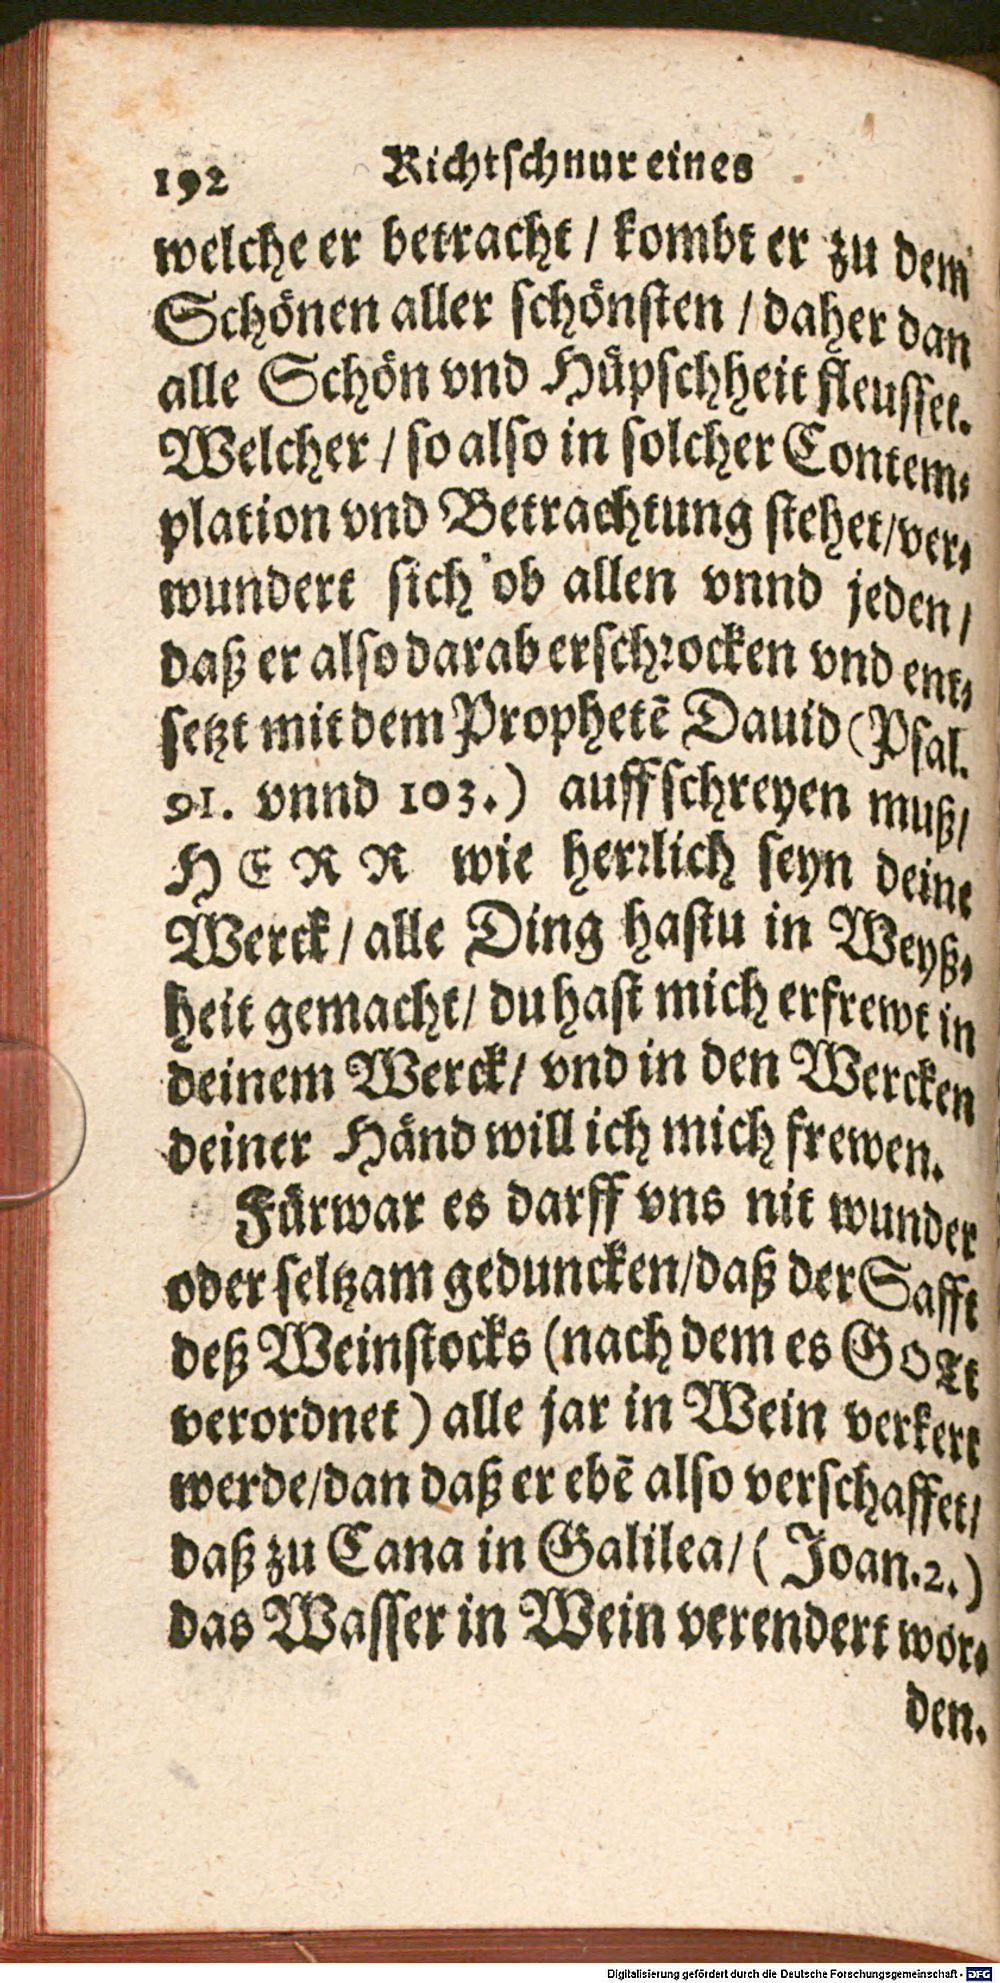 192 Richtschnur eines
welche er betracht / kombt er zu dem
Schönen aller schönsten / daher dan
alle Schön vnd Hüpschheit fleusset.
Welcher / so also in solcher Contem-
plation vnd Betrachtung stehet/ver-
wundert sich ob allen vnnd jeden /
daß er also darab erschrocken vnd ent-
setzt mit dem Prophetē Dauid (Psal.
91. vnnd 103.) auffschreyen muß/
HERR wie herrlich seyn deine
Werck / alle Ding hastu in Weyß-
heit gemacht/ du hast mich erfrewt in
deinem Werck/ vnd in den Wercken
deiner Händ will ich mich frewen.
Fürwar es darff vns nit wunder
oder seltzam geduncken/daß der Safft
deß Weinstocks (nach dem es GOTt
verordnet) alle jar in Wein verkert
werde/dan daß er ebē also verschaffet/
daß zu Cana in Galilea/ (Joan.2.)
das Wasser in Wein verendert wor-
den.
Digitalisierung gefördert durch die Deutsche Forschungsgemeinschaft - DFG